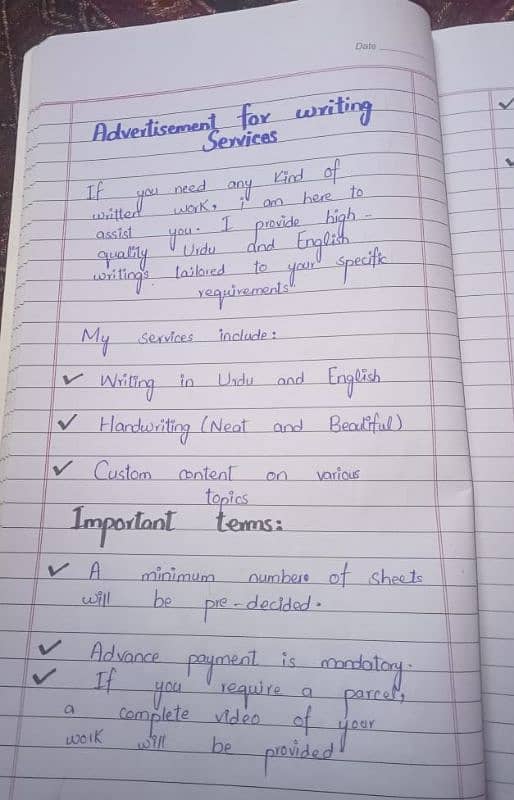 Date
Advertisement for writing
Services
If you need any kind of
written work, i am here to
assist you. I provide high-
quality Urdu and English
writings tailored to your specific
requirements
My services include:
✓ Writing in Urdu and English
✓ Handwriting (Neat and Beautiful)
✓ Custom content on various
topics
Important terms:
✓ A minimum numbers of sheets
will be pre-decided.
✓ Advance payment is mandatory.
✓ If you require a parcel,
a complete video of your
work will be provided